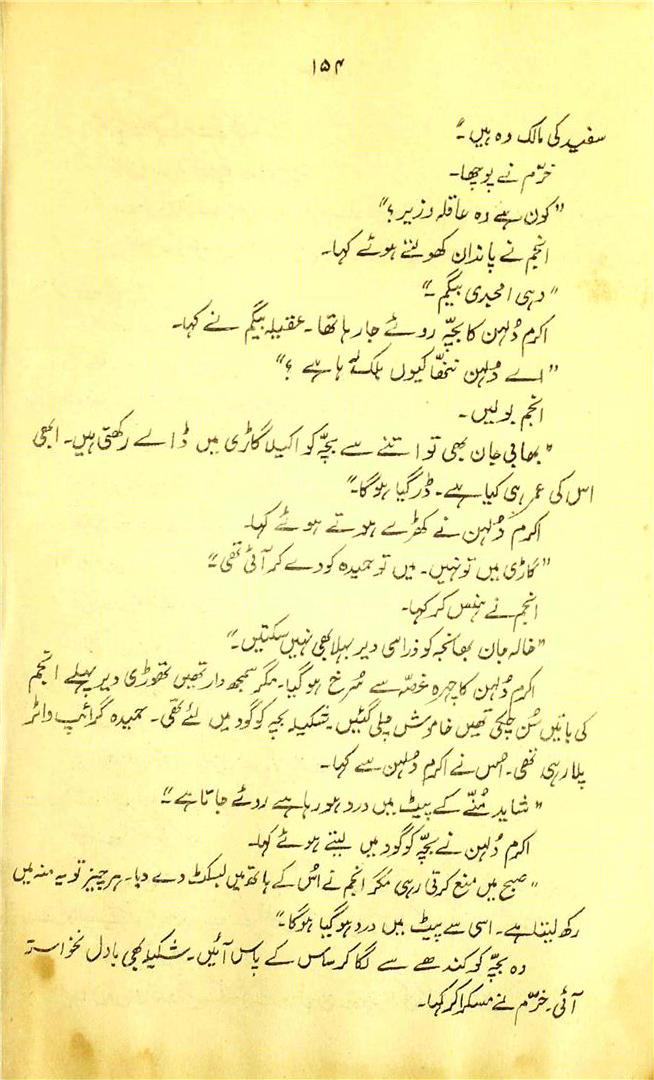 ۱۵۴
سفید کی مالک وہ ہیں۔"
خرّم نے پوچھا۔
"کون ہے وہ عاقلہ وزیر؟"
انجم نے پاندان کھولتے ہوئے کہا۔
"وہی امجدی بیگم۔"
اکرم دُلہن کا بچّہ روئے جا رہا تھا۔ عقیلہ بیگم نے کہا۔
"اے دُلہن ننھّا کیوں بلک رہا ہے؟"
انجم بولیں۔
"بھابی جان بھی تو اتنے سے بچّہ کو اکیلا گاڑی میں ڈالے رکھتی ہیں۔ ابھی
اس کی عمر ہی کیا ہے۔ ڈر گیا ہوگا۔"
اکرم دُلہن نے کھڑے ہوتے ہوئے کہا۔
"گاڑی میں تو نہیں۔ میں تو حمیدہ کو دے کر آئی تھی۔"
انجم نے ہنس کر کہا۔
"خالہ جان بھانجہ کو ذرا سی دیر بہلا بھی نہیں سکتیں۔"
اکرم دُلہن کا چہرہ غصّہ سے سُرخ ہو گیا۔ مگر سمجھ دار تھیں تھوڑی دیر پہلے انجم
کی باتیں سُن چکی تھیں خاموش چلی گئیں۔ شکیلہ بچہ کو گود میں لئے تھی۔ حمیدہ گرائپ واٹر
پلا رہی تھی۔ اُس نے اکرم دُلہن سے کہا۔
"شاید مُنّے کے پیٹ میں درد ہو رہا ہے روئے جاتا ہے۔"
اکرم دلہن نے بچّہ کو گود میں لیتے ہوئے کہا۔
"صبح میں منع کرتی رہی مگر انجم نے اُس کے ہاتھ میں بسکٹ دے دیا۔ ہر چیز تو یہ منہ میں
رکھ لیتا ہے۔ اسی سے پیٹ میں درد ہو گیا ہوگا۔"
وہ بچّہ کو کندھے سے لگا کر ساس کے پاس آئیں۔ شکیلہ بھی بادل نخواستہ
آئی۔ خرّم نے مسکرا کر کہا۔